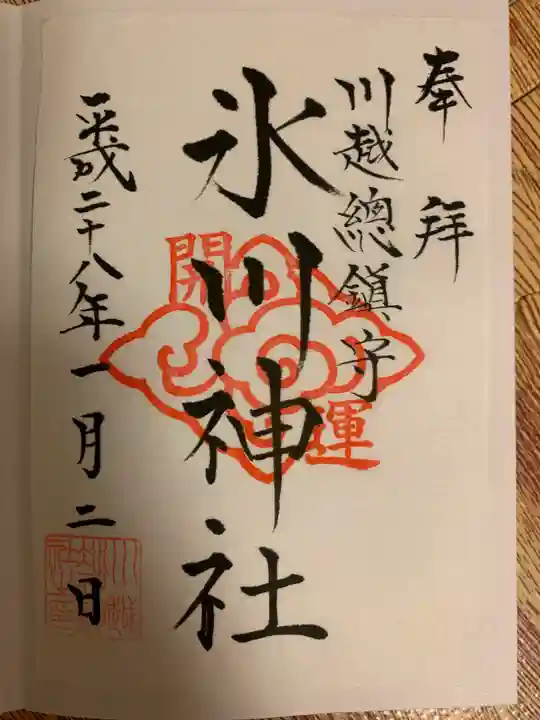 奉拝
川越總鎮守
氷川神社
開運
平成二十八年一月二日